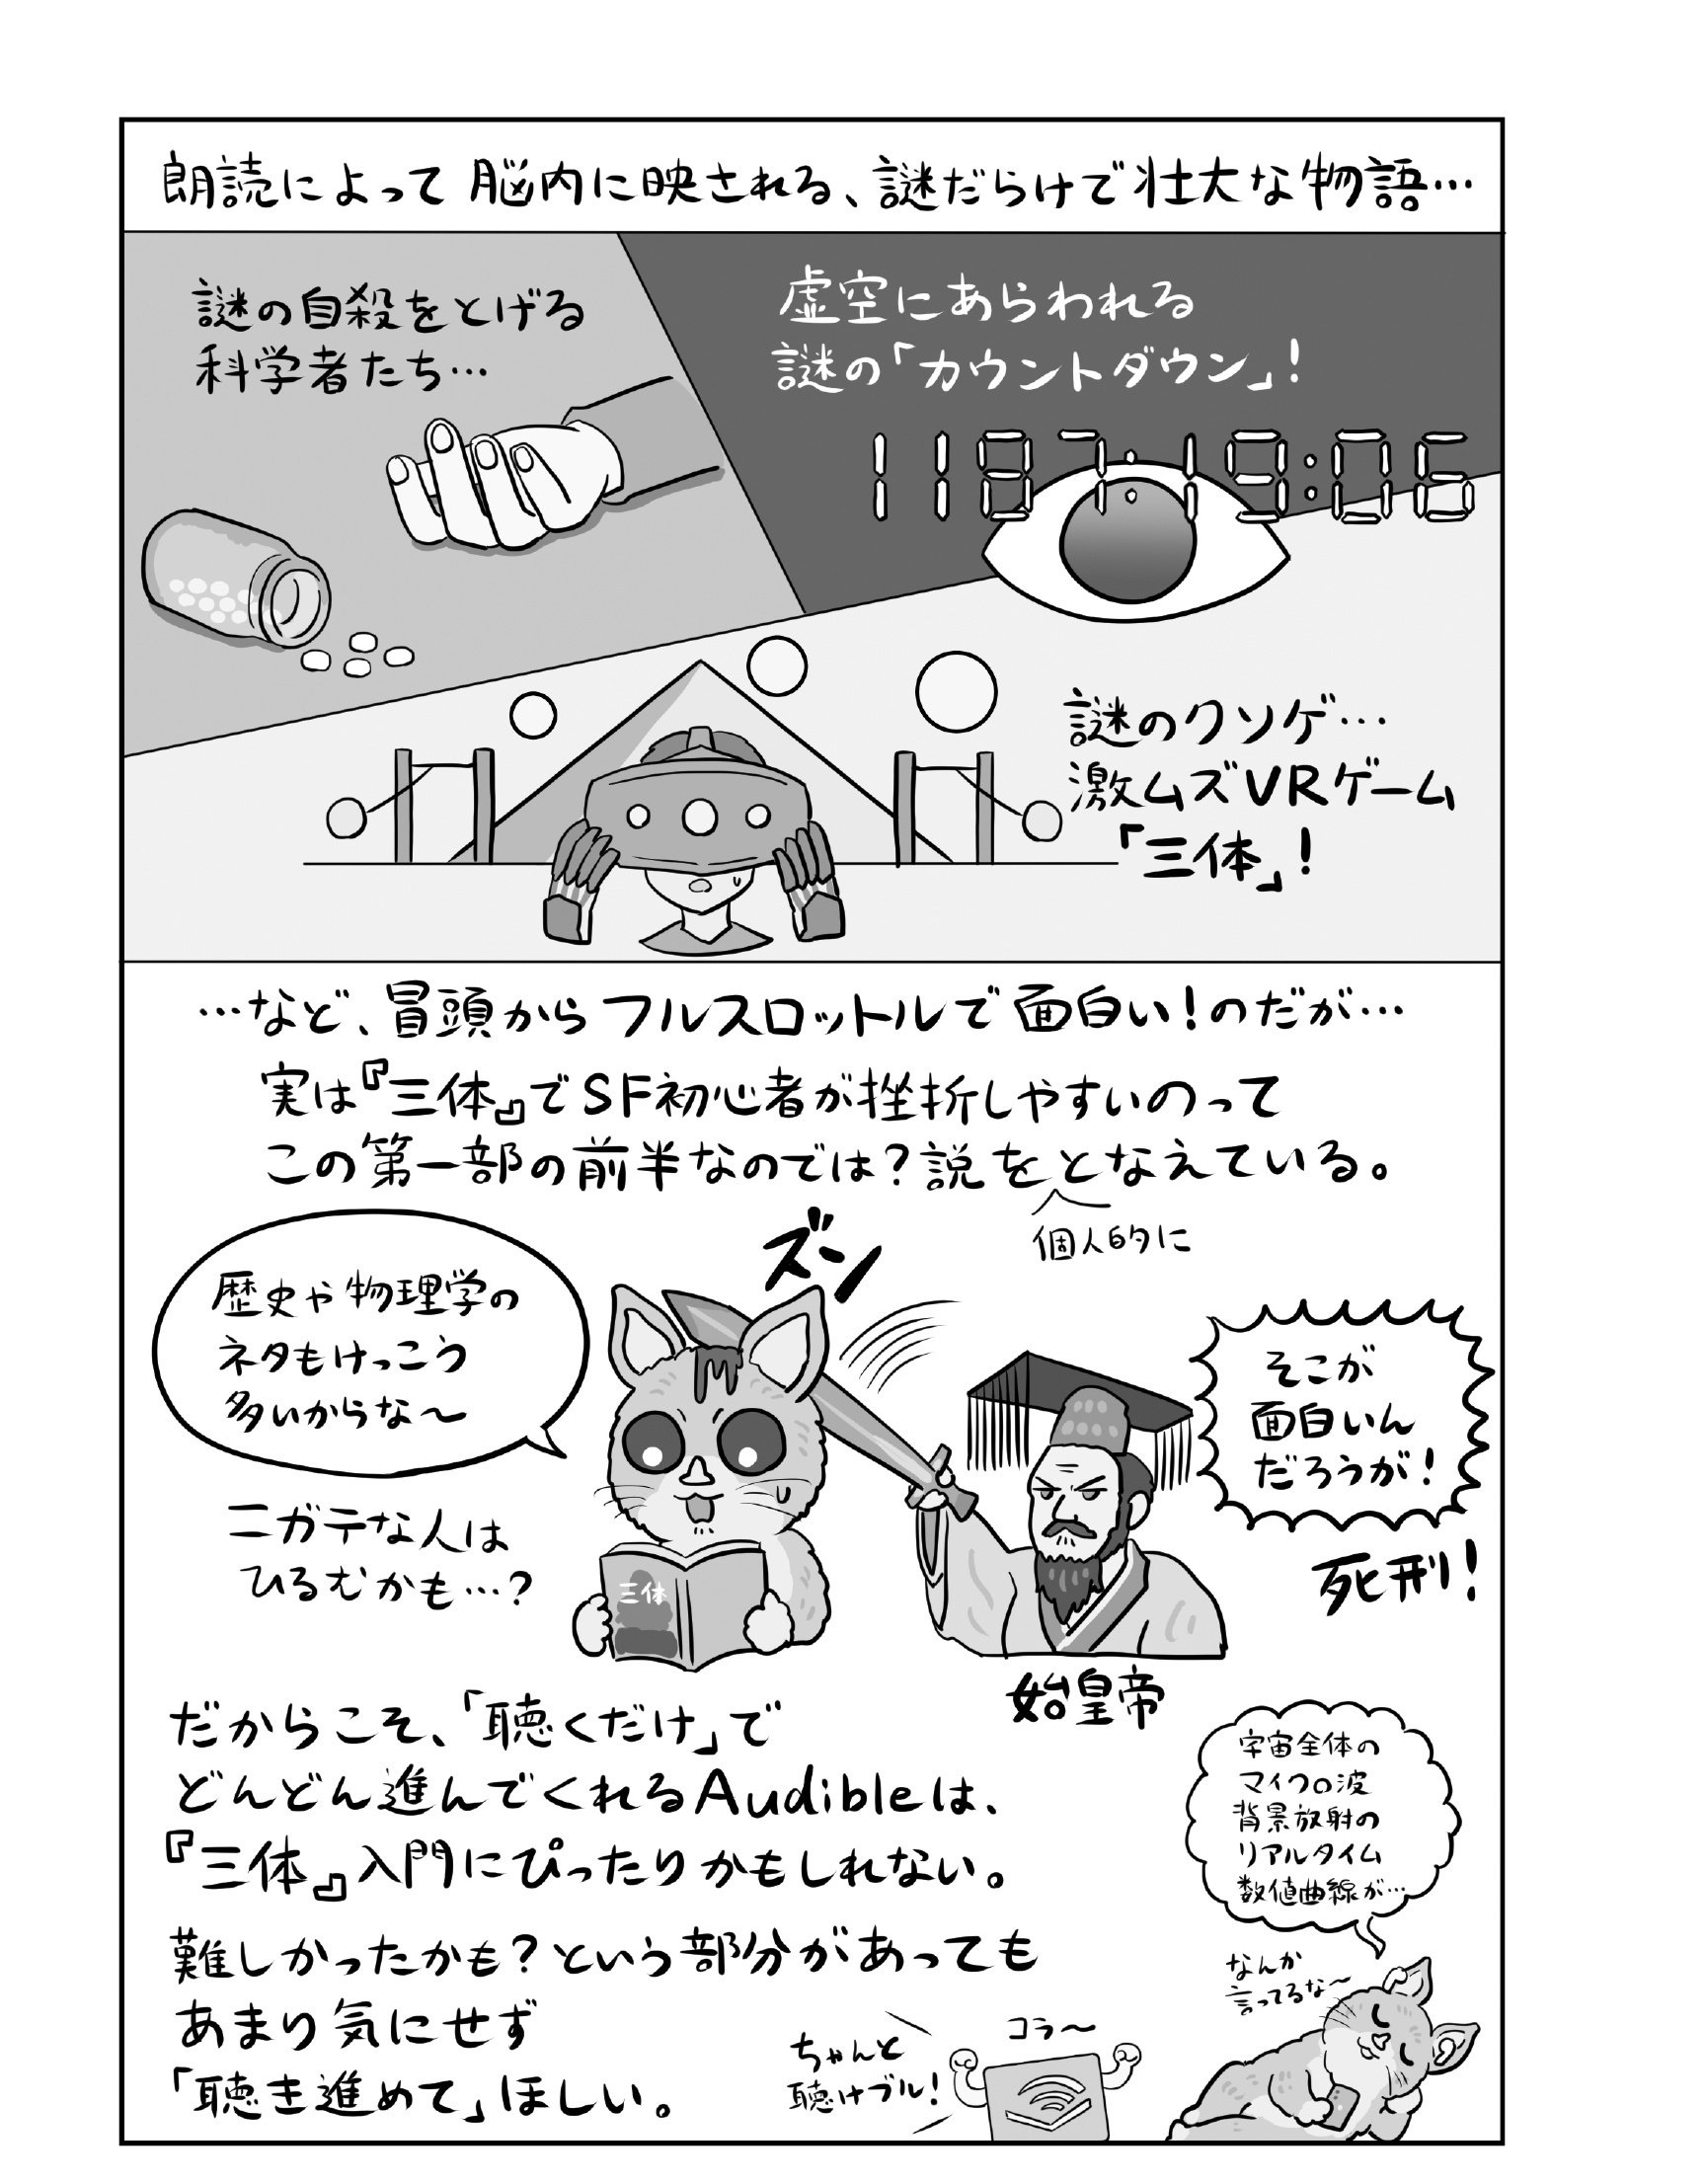 朗読によって 脳内に映される、謎だらけで壮大な物語…
謎の自殺をとげる
科学者たち…
虚空にあらわれる
謎の「カウントダウン」!
1187:19:06
謎のクソゲ…
激ムズVRゲーム
「三体」!
…など、冒頭からフルスロットルで面白い!のだが…
実は『三体』でSF初心者が挫折しやすいのって
この第一部の前半なのでは?説をとなえている。
個人的に
歴史や物理学の
ネタもけっこう
多いからな〜
ニガテな人は
ひるむかも…?
ズン
三体
そこが
面白いん
だろうが!
死刑!
始皇帝
だからこそ、「聴くだけ」で
どんどん進んでくれるAudibleは、
『三体』入門にぴったりかもしれない。
難しかったかも?という部分があっても
あまり気にせず
「聴き進めて」ほしい。
宇宙全体の
マイクロ波
背景放射の
リアルタイム
数値曲線が…
なんか
言ってるな〜
コラ〜
ちゃんと
聴けブル!